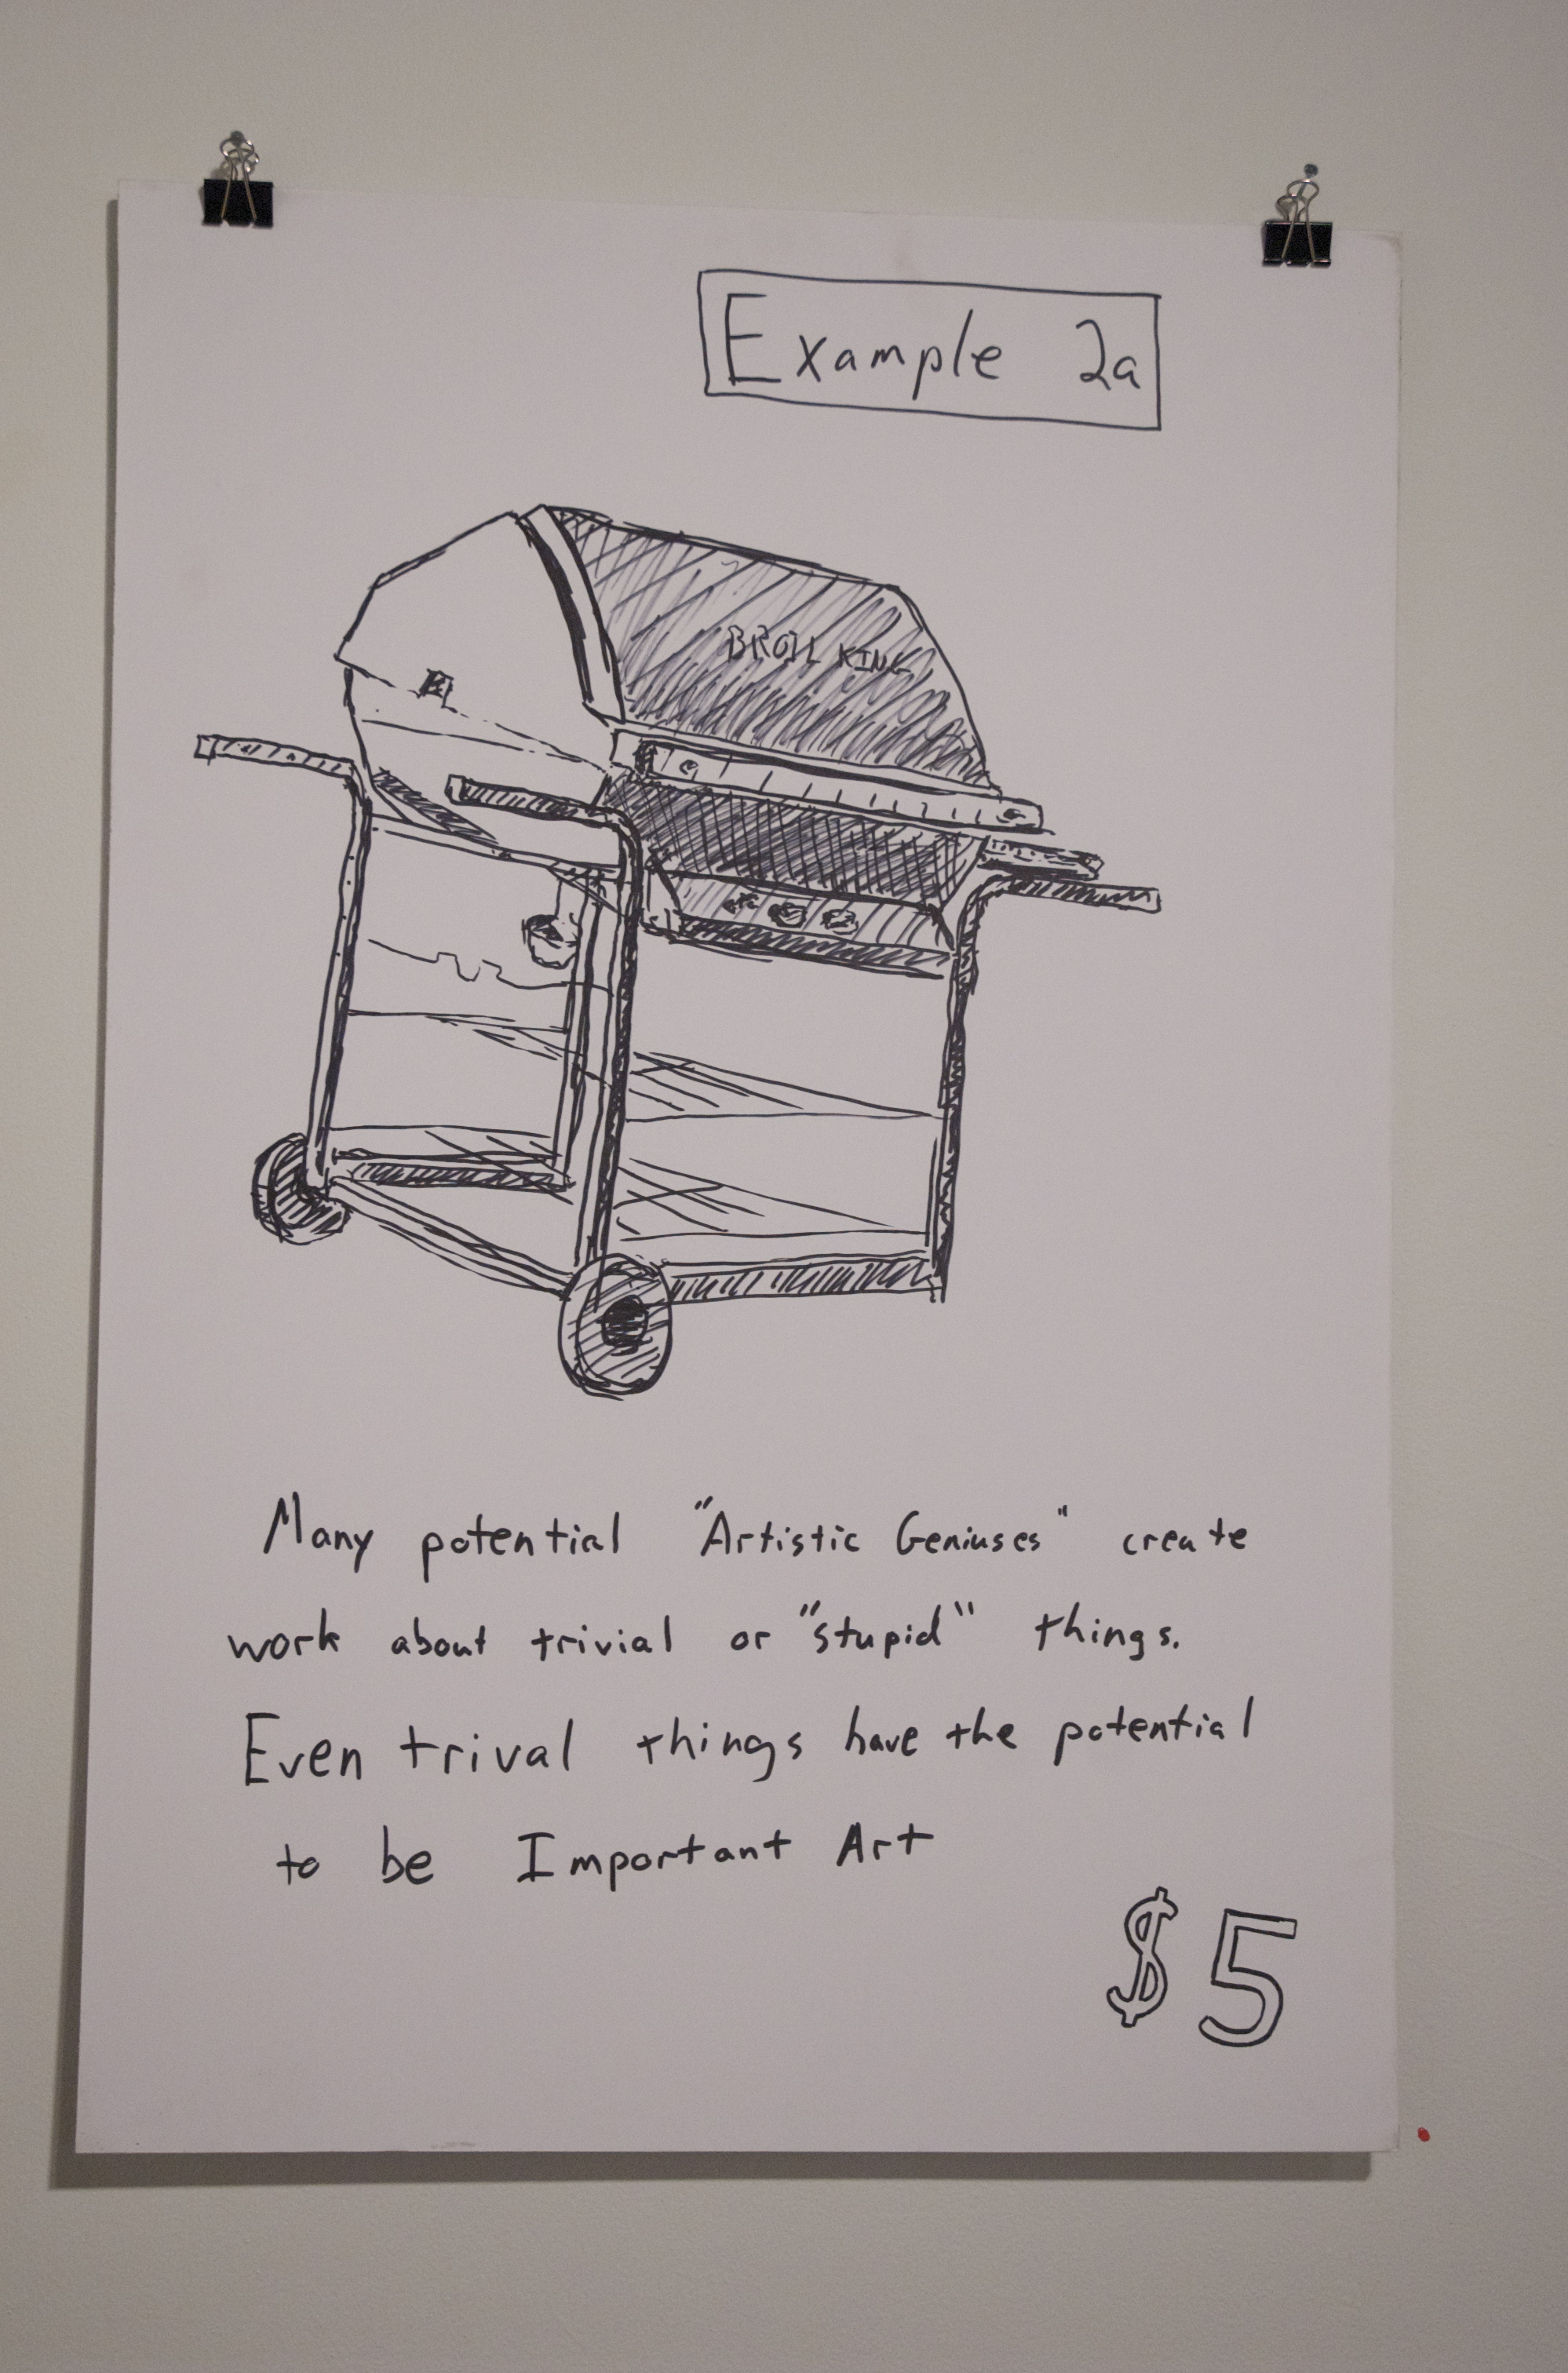 Example 2a
BROIL KING
Many potential "Artistic Geniuses" create
work about trivial or "stupid" things.
Even trival things have the potential
to be Important Art
$5